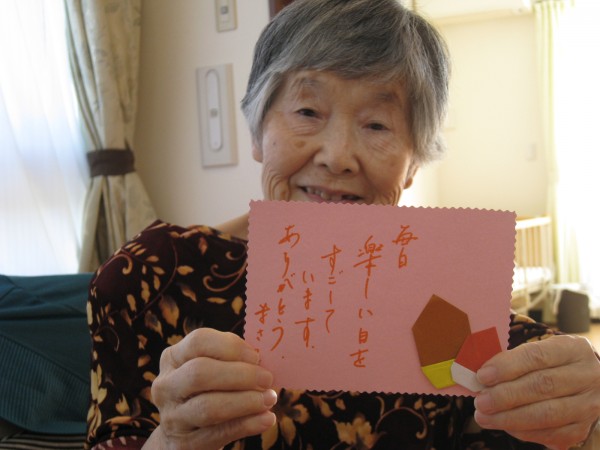 毎日
楽しい日を
すごして
います.
ありがとう.